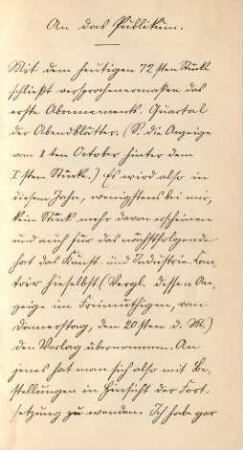 An das Publikum.
Mit dem heutigen 72sten Stück
schließt versprochenermaßen das
erste Abonnements-Quartal
der Abendblätter. (S. die Anzeige
vom 1ten October hinter dem
1sten Stück.) Es wird also in
diesem Jahr, wenigstens bei mir,
kein Stück mehr davon erscheinen
und auch für das nächstfolgende
hat das Kunst- und Industrie-Com-
toir hieselbst (Vergl. dessen An-
zeige im Freimüthigen, vom
Donnerstag, den 20sten d. M.
den Verlag übernommen. An
jenes hat man sich also mit Be-
stellungen in Hinsicht der Fort-
setzung zu wenden. Ich habe gar